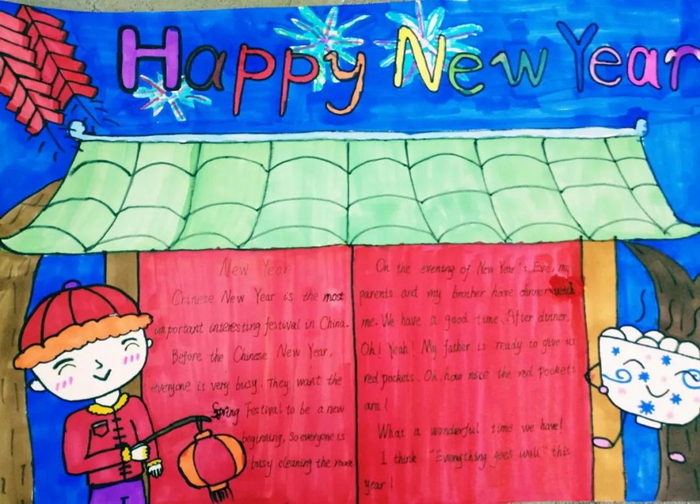 Happy New Year
New Year
Chinese New Year is the most
important interesting festival in China.
Before the Chinese New Year,
everyone is very busy. They want the
Spring Festival to be a new
beginning. So everyone is
busy cleaning the room
On the evening of New Year's Eve, my
parents and my brother have dinner with
me. We have a good time. After dinner,
Oh! Yeah! My father is ready to give us
red pockets. Oh, how nice the red pockets
are!
What a wonderful time we have!
I think "Everything goes well" this
year!